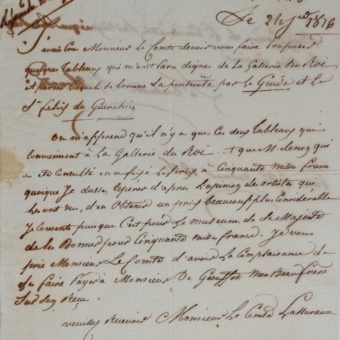 Le 21 1816
j'avais cru Monsieur le Comte devoir vous faire proposer
quelque tableaux qui m'ont paru dignes de la Gallerie du Roi
et parmi lesquels se trouve La par le Guide et le
St felix du Guerchin
On m'apprend qu'il n'y a que ces deux tableaux qui
conviennent à la Gallerie du Roi que M. qui
a été Consulté en a fixé le prix à Cinquante mille francs
quoique je dusse Esperer d'après l'opinion des artistes qui
les ont vus, d'en Obtenir un prix beaucoup plus Considerable
je Consents puisque C'est pour le museum de Sa Majesté
de les Donner pour Cinquante mille francs. Je vous
prie Monsieur Le Comte d'avoir la Complaisance de
les faire payer à Monsieur De mon Beau frere
Sur Son Reçu.
veuillez recevoir Monsieur le Comte L'assurance